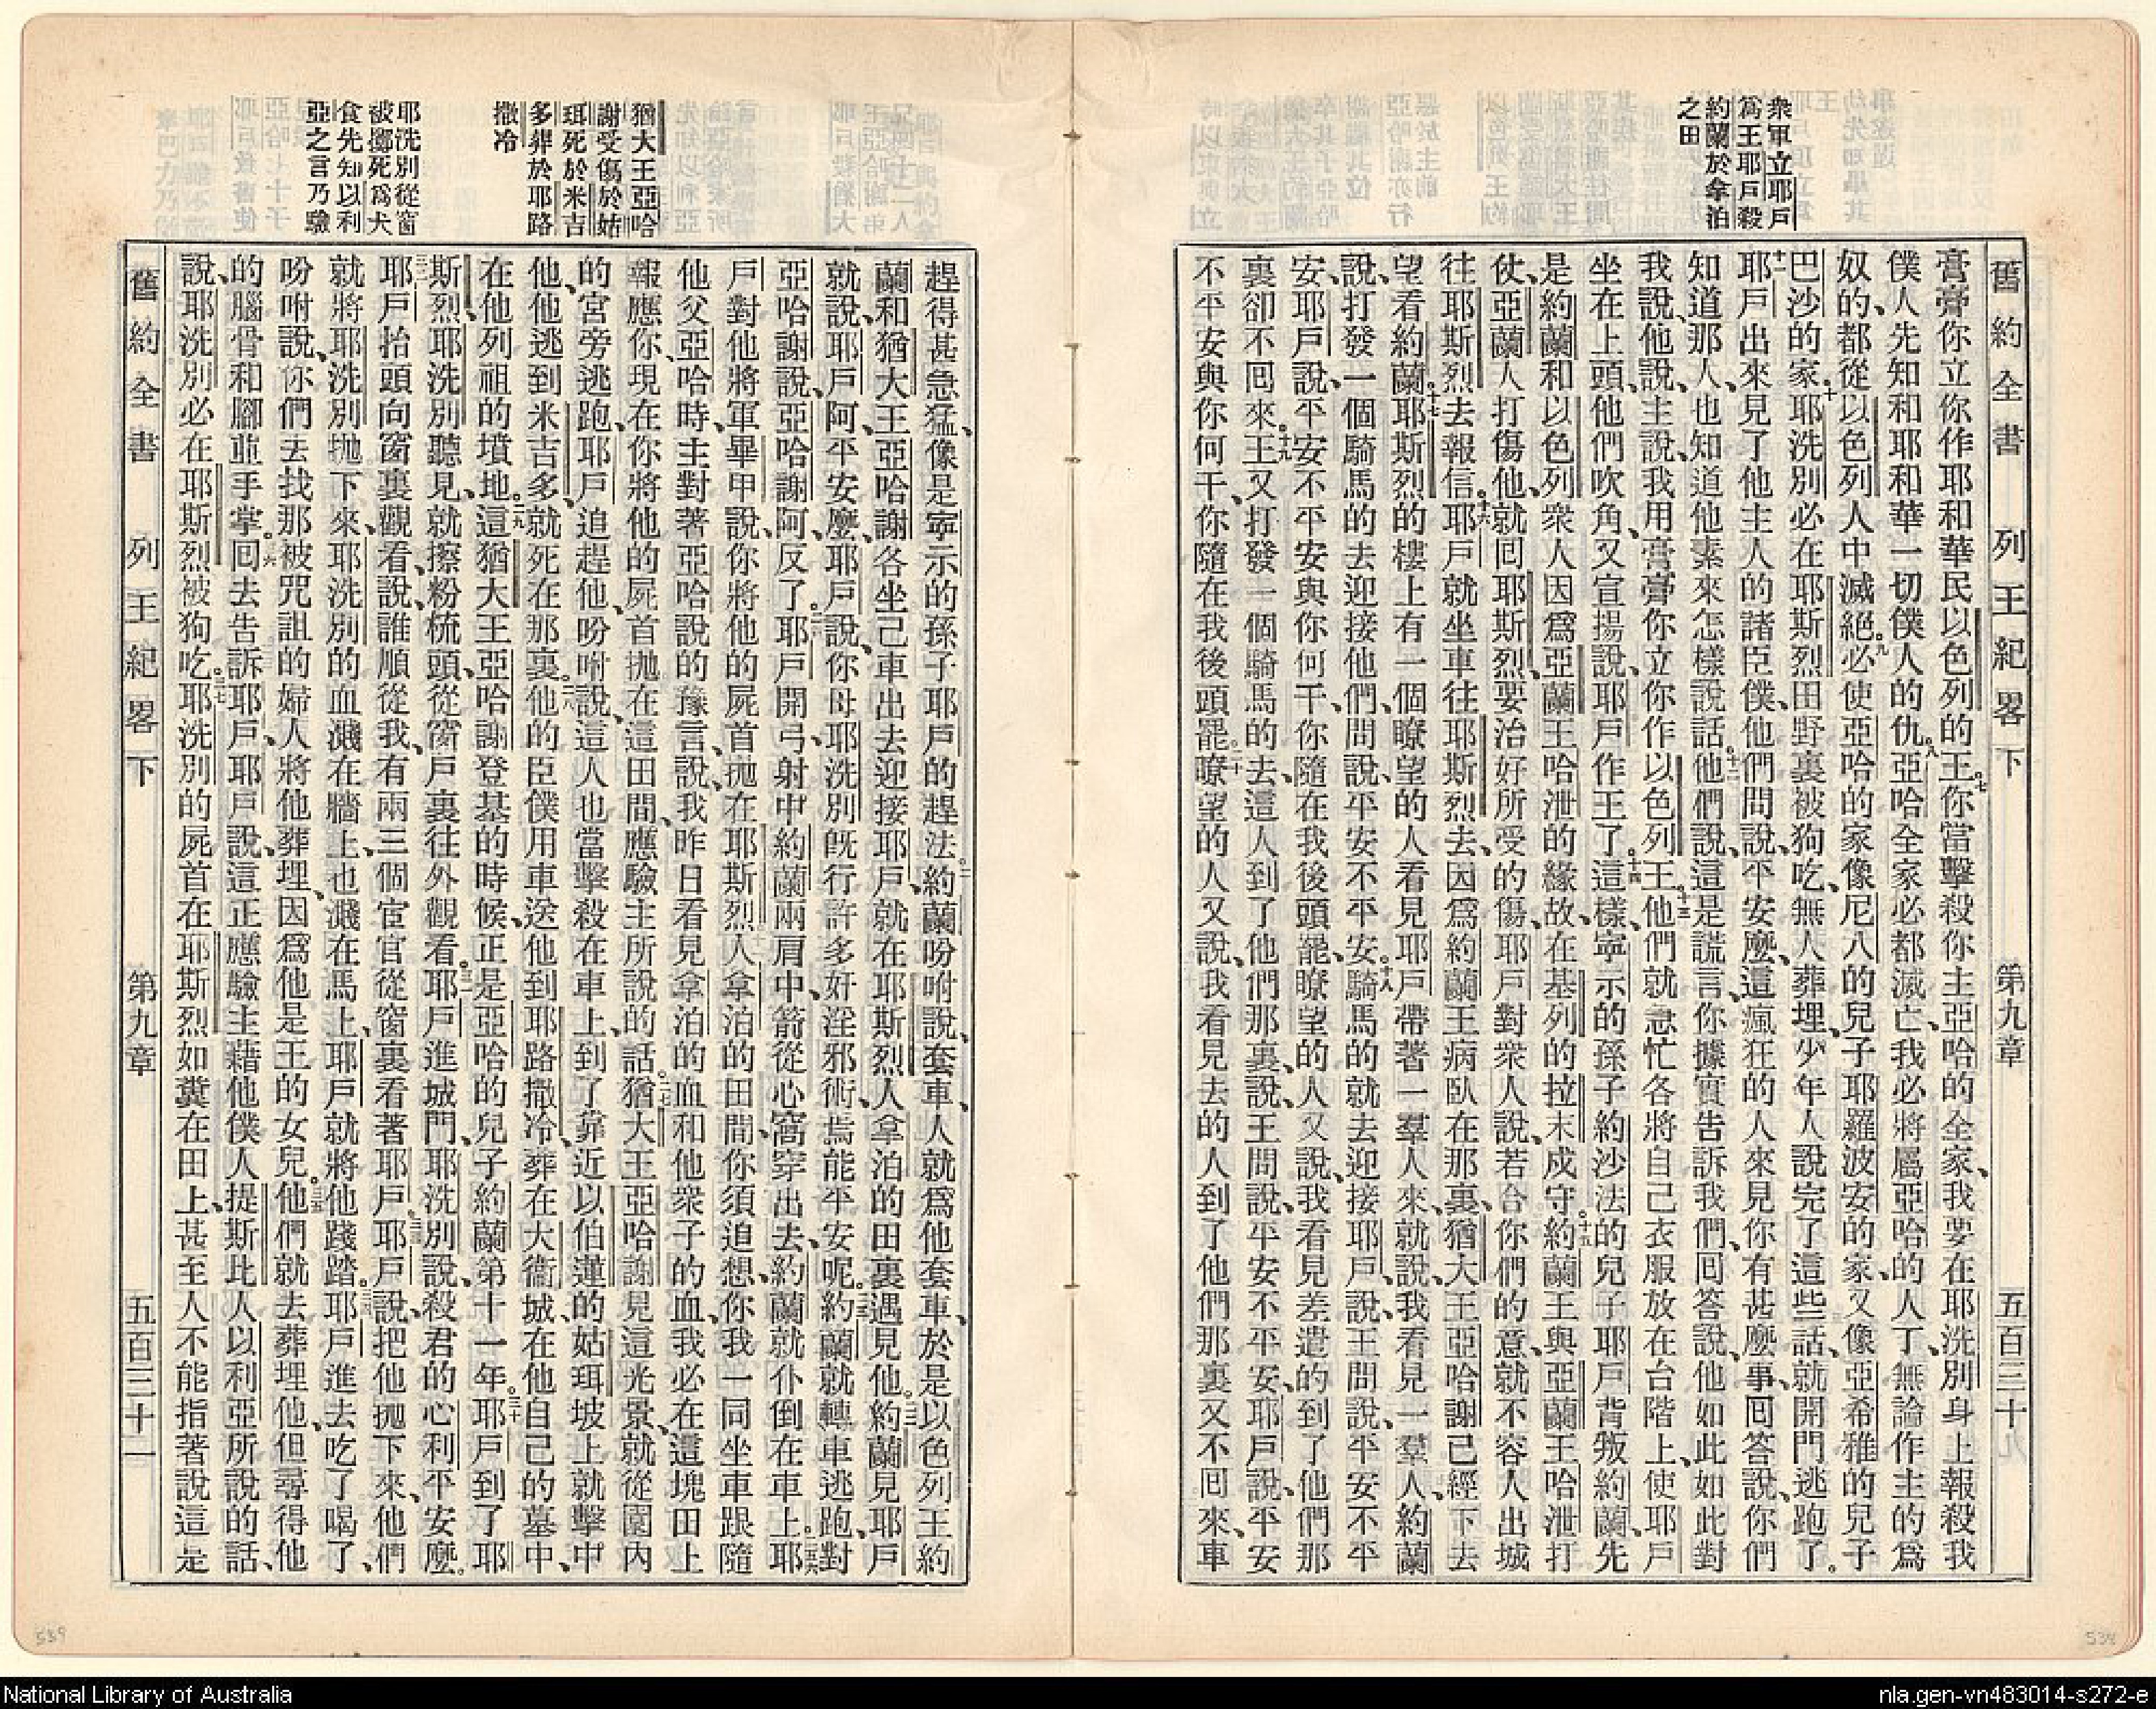 衆軍立耶戶
爲王耶戶殺
約蘭於拿泊
之田
舊約全書 列王紀畧下 第九章 五百三十九
膏膏你立你作耶和華民以色列的王。七你當擊殺你主亞哈的全家、我要在耶洗別身上報殺我
僕人先知和耶和華一切僕人的仇。八亞哈全家必都滅亡、我必將屬亞哈的人丁、無論作主的爲
奴的、都從以色列人中滅絕。九必使亞哈的家像尼八的兒子耶羅波安的家、又像亞希雅的兒子
巴沙的家。十耶洗別必在耶斯烈田野裏被狗吃、無人葬埋、少年人說完了這些話、就開門逃跑了。
十一耶戶出來見了他主人的諸臣僕、他們問說、平安麼、這瘋狂的人來見你有甚麼事、回答說、你們
知道那人、也知道他素來怎樣說話。十二他們說、這是謊言、你據實告訴我們、回答說、他如此如此對
我說、他說、主說、我用膏膏你立你作以色列王。十三他們就急忙各將自己衣服放在台階上、使耶戶
坐在上頭、他們吹角、又宣揚說、耶戶作王了。十四這樣寧示的孫子約沙法的兒子耶戶背叛約蘭、先
是約蘭和以色列衆人因爲亞蘭王哈泄的緣故、在基列的拉末戍守。十五約蘭王與亞蘭王哈泄打
仗、亞蘭人打傷他、就回耶斯烈、要治好所受的傷、耶戶對衆人說、若合你們的意、就不容人出城
往耶斯烈去報信。十六耶戶就坐車往耶斯烈去、因爲約蘭王病臥在那裏、猶大王亞哈謝已經下去
望看約蘭。十七耶斯烈的樓上有一個瞭望的人看見耶戶帶著一羣人來、就說、我看見一羣人、約蘭
說、打發一個騎馬的去迎接他們、問說、平安不平安。十八騎馬的就去迎接耶戶、說、王問說、平安不平
安、耶戶說、平安不平安與你何干、你隨在我後頭罷、瞭望的人又說、我看見差遣的到了他們那
裏卻不囘來。十九王又打發一個騎馬的去、這人到了他們那裏、說、王問說、平安不平安、耶戶說、平安
不平安與你何干、你隨在我後頭罷。二十瞭望的人又說、我看見去的人到了他們那裏又不囘來、車
猶大王亞哈
謝受傷於姑
珥死於米吉
多葬於耶路
撒冷
耶洗別從窗
被擲死爲犬
食先知以利
亞之言乃驗
趕得甚急猛、像是寧示的孫子耶戶的趕法。二一約蘭吩咐說、套車、人就爲他套車、於是以色列王約
蘭和猶大王亞哈謝各坐己車出去迎接耶戶、就在耶斯烈人拿泊的田裏遇見他。二二約蘭見耶戶
就說、耶戶阿、平安麼、耶戶說、你母耶洗別旣行許多奸淫邪術、焉能平安呢。二三約蘭就轉車逃跑、對
亞哈謝說、亞哈謝阿、反了。二四耶戶開弓、射中約蘭兩肩中、箭從心窩穿出去、約蘭就仆倒在車上。二五耶
戶對他將軍畢甲說、你將他的屍首抛在耶斯烈人拿泊的田間、你須追想、你我一同坐車跟隨
他父亞哈時、主對著亞哈說的豫言、說、我昨日看見拿泊的血和他衆子的血、我必在這塊田上
報應你、現在你將他的屍首抛在這田間、應驗主所說的話。二七猶大王亞哈謝見這光景、就從園內
的宮旁逃跑、耶戶追趕他、吩咐說、這人也當擊殺在車上、到了靠近以伯蓮的姑珥坡上就擊中
他、他逃到米吉多、就死在那裏。二八他的臣僕用車送他到耶路撒冷、葬在大衞城、在他自己的墓中、
在他列祖的墳地。二九這猶大王亞哈謝登基的時候、正是亞哈的兒子約蘭第十一年。三十耶戶到了耶
斯烈、耶洗別聽見、就擦粉梳頭、從窗戶裏往外觀看。三一耶戶進城門、耶洗別說、殺君的心利平安麼。
三二耶戶抬頭向窗裏觀看、說、誰順從我、有兩三個宦官從窗裏看著耶戶。三三耶戶說、把他抛下來、他們
就將耶洗別抛下來、耶洗別的血濺在牆上、也濺在馬上、耶戶就將他踐踏。三四耶戶進去吃了喝了、
吩咐說、你們去找那被咒詛的婦人將他葬埋、因爲他是王的女兒。三五他們就去葬埋他、但尋得他
的腦骨和腳並手掌。三六囘去告訴耶戶、耶戶說、這正應驗主藉他僕人提斯比人以利亞所說的話、
說、耶洗別必在耶斯烈被狗吃。三七耶洗別的屍首在耶斯烈如糞在田上、甚至人不能指著說這是
舊約全書 列王紀畧下 第九章 五百三十一
539
538
National Library of Australia
nla.gen-vn483014-s272-e